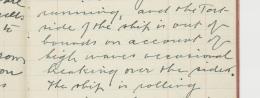 are
running, and the Port
ells
side of the ship is out of
to
bounds on account of
high waves occasional
rom
breaking over the sides.
on
The ship is rolling